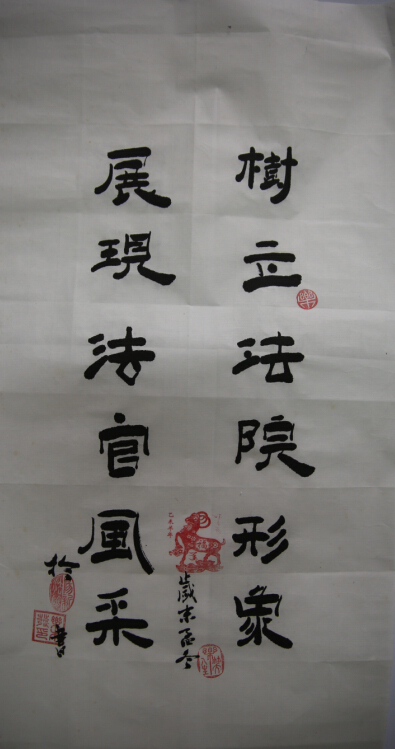 樹立法院形象
展現法官風采
歲末